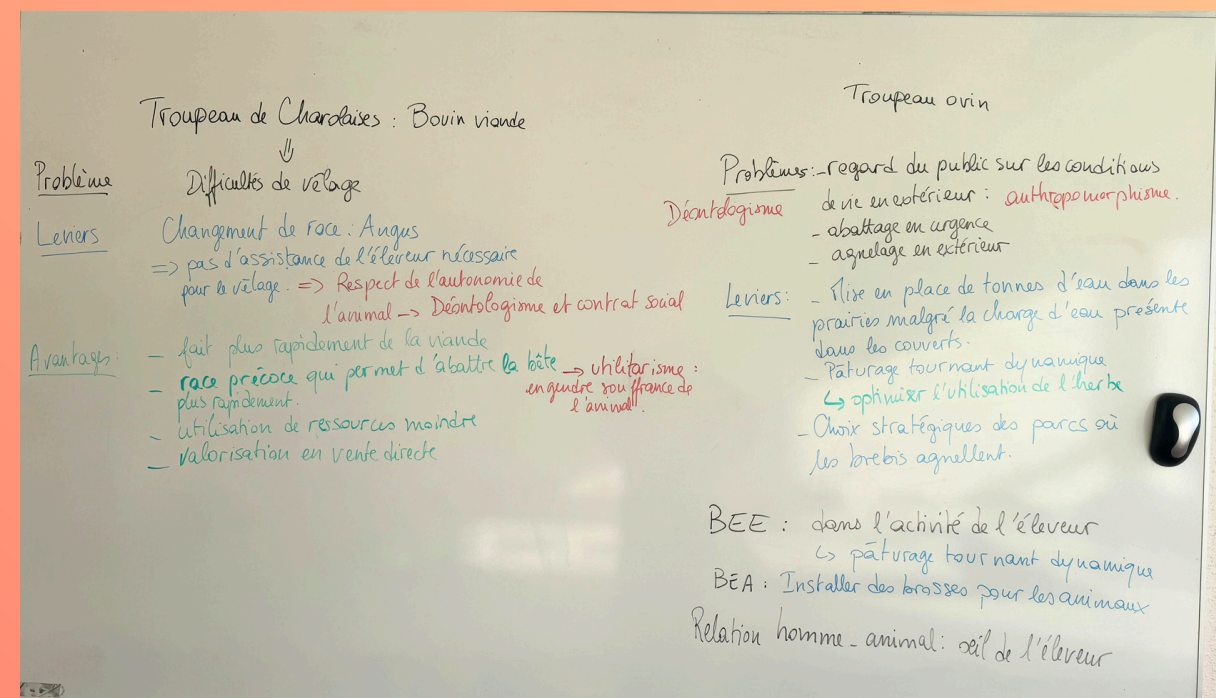 Troupeau de Charolaises : Bovin viande
⇓
Problème
Difficultés de vêlage
Leviers
Changement de race : Angus
=> pas d'assistance de l'éleveur nécessaire
pour le vêlage. => Respect de l'autonomie de
l'animal -> Déontologisme et contrat social
Avantages :
- fait plus rapidement de la viande
- race précoce qui permet d'abattre la bête -> utilitarisme :
plus rapidement.
engendre souffrance de
l'animal.
- utilisation de ressources moindre
- valorisation en vente directe
Troupeau ovin
Problèmes : - regard du public sur les conditions
Déontologisme
de vie en extérieur : anthropomorphisme.
- abattage en urgence
- agnelage en extérieur
Leviers :
- Mise en place de tonnes d'eau dans les
prairies malgré la charge d'eau présente
dans les couverts.
- Pâturage tournant dynamique
↳ optimiser l'utilisation de l'herbe
- Choix stratégiques des parcs où
les brebis agnellent.
BEE : dans l'activité de l'éleveur
↳ pâturage tournant dynamique
BEA : Installer des brosses pour les animaux
Relation homme - animal : œil de l'éleveur